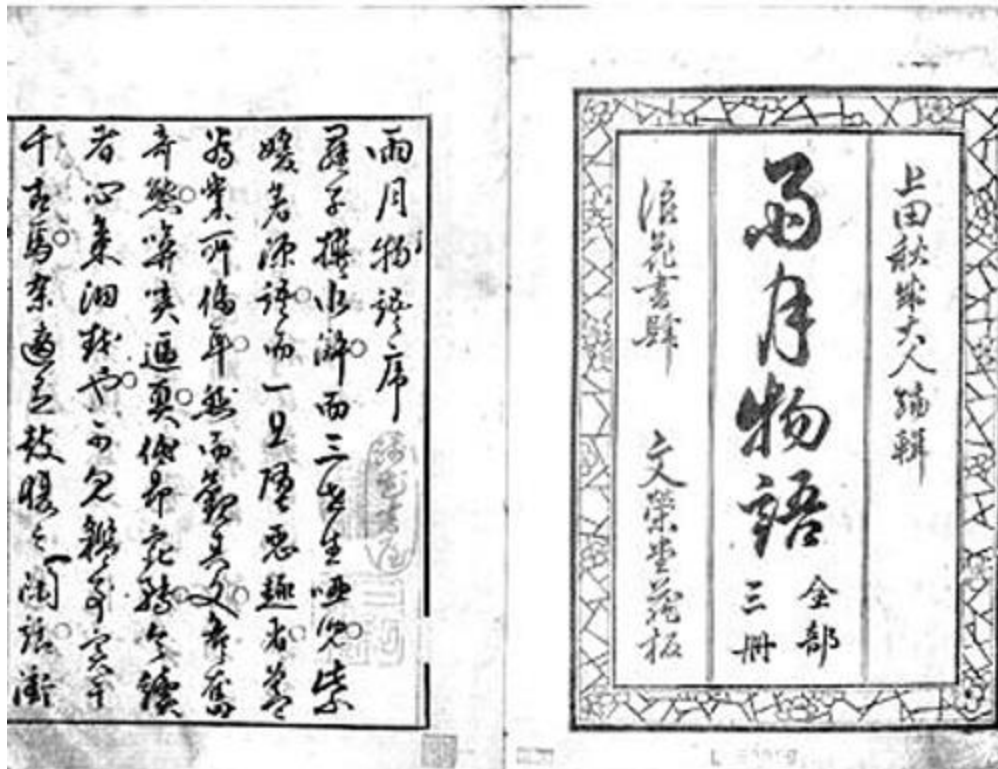 上田秋成大人編輯
雨月物語
全部
三冊
浪花書肆 文榮堂藏板
雨月物語序
羅子撰水滸。而三世生唖兒。紫
媛著源語。而一旦墮惡趣者。蓋
為業所偪耳。然而觀其文。各奮
奇態。啽哢逼真。低昂宛轉。令讀
者心氣洞越也。可見鑑事實于
千古焉。余適有鼓腹之閑話。衝